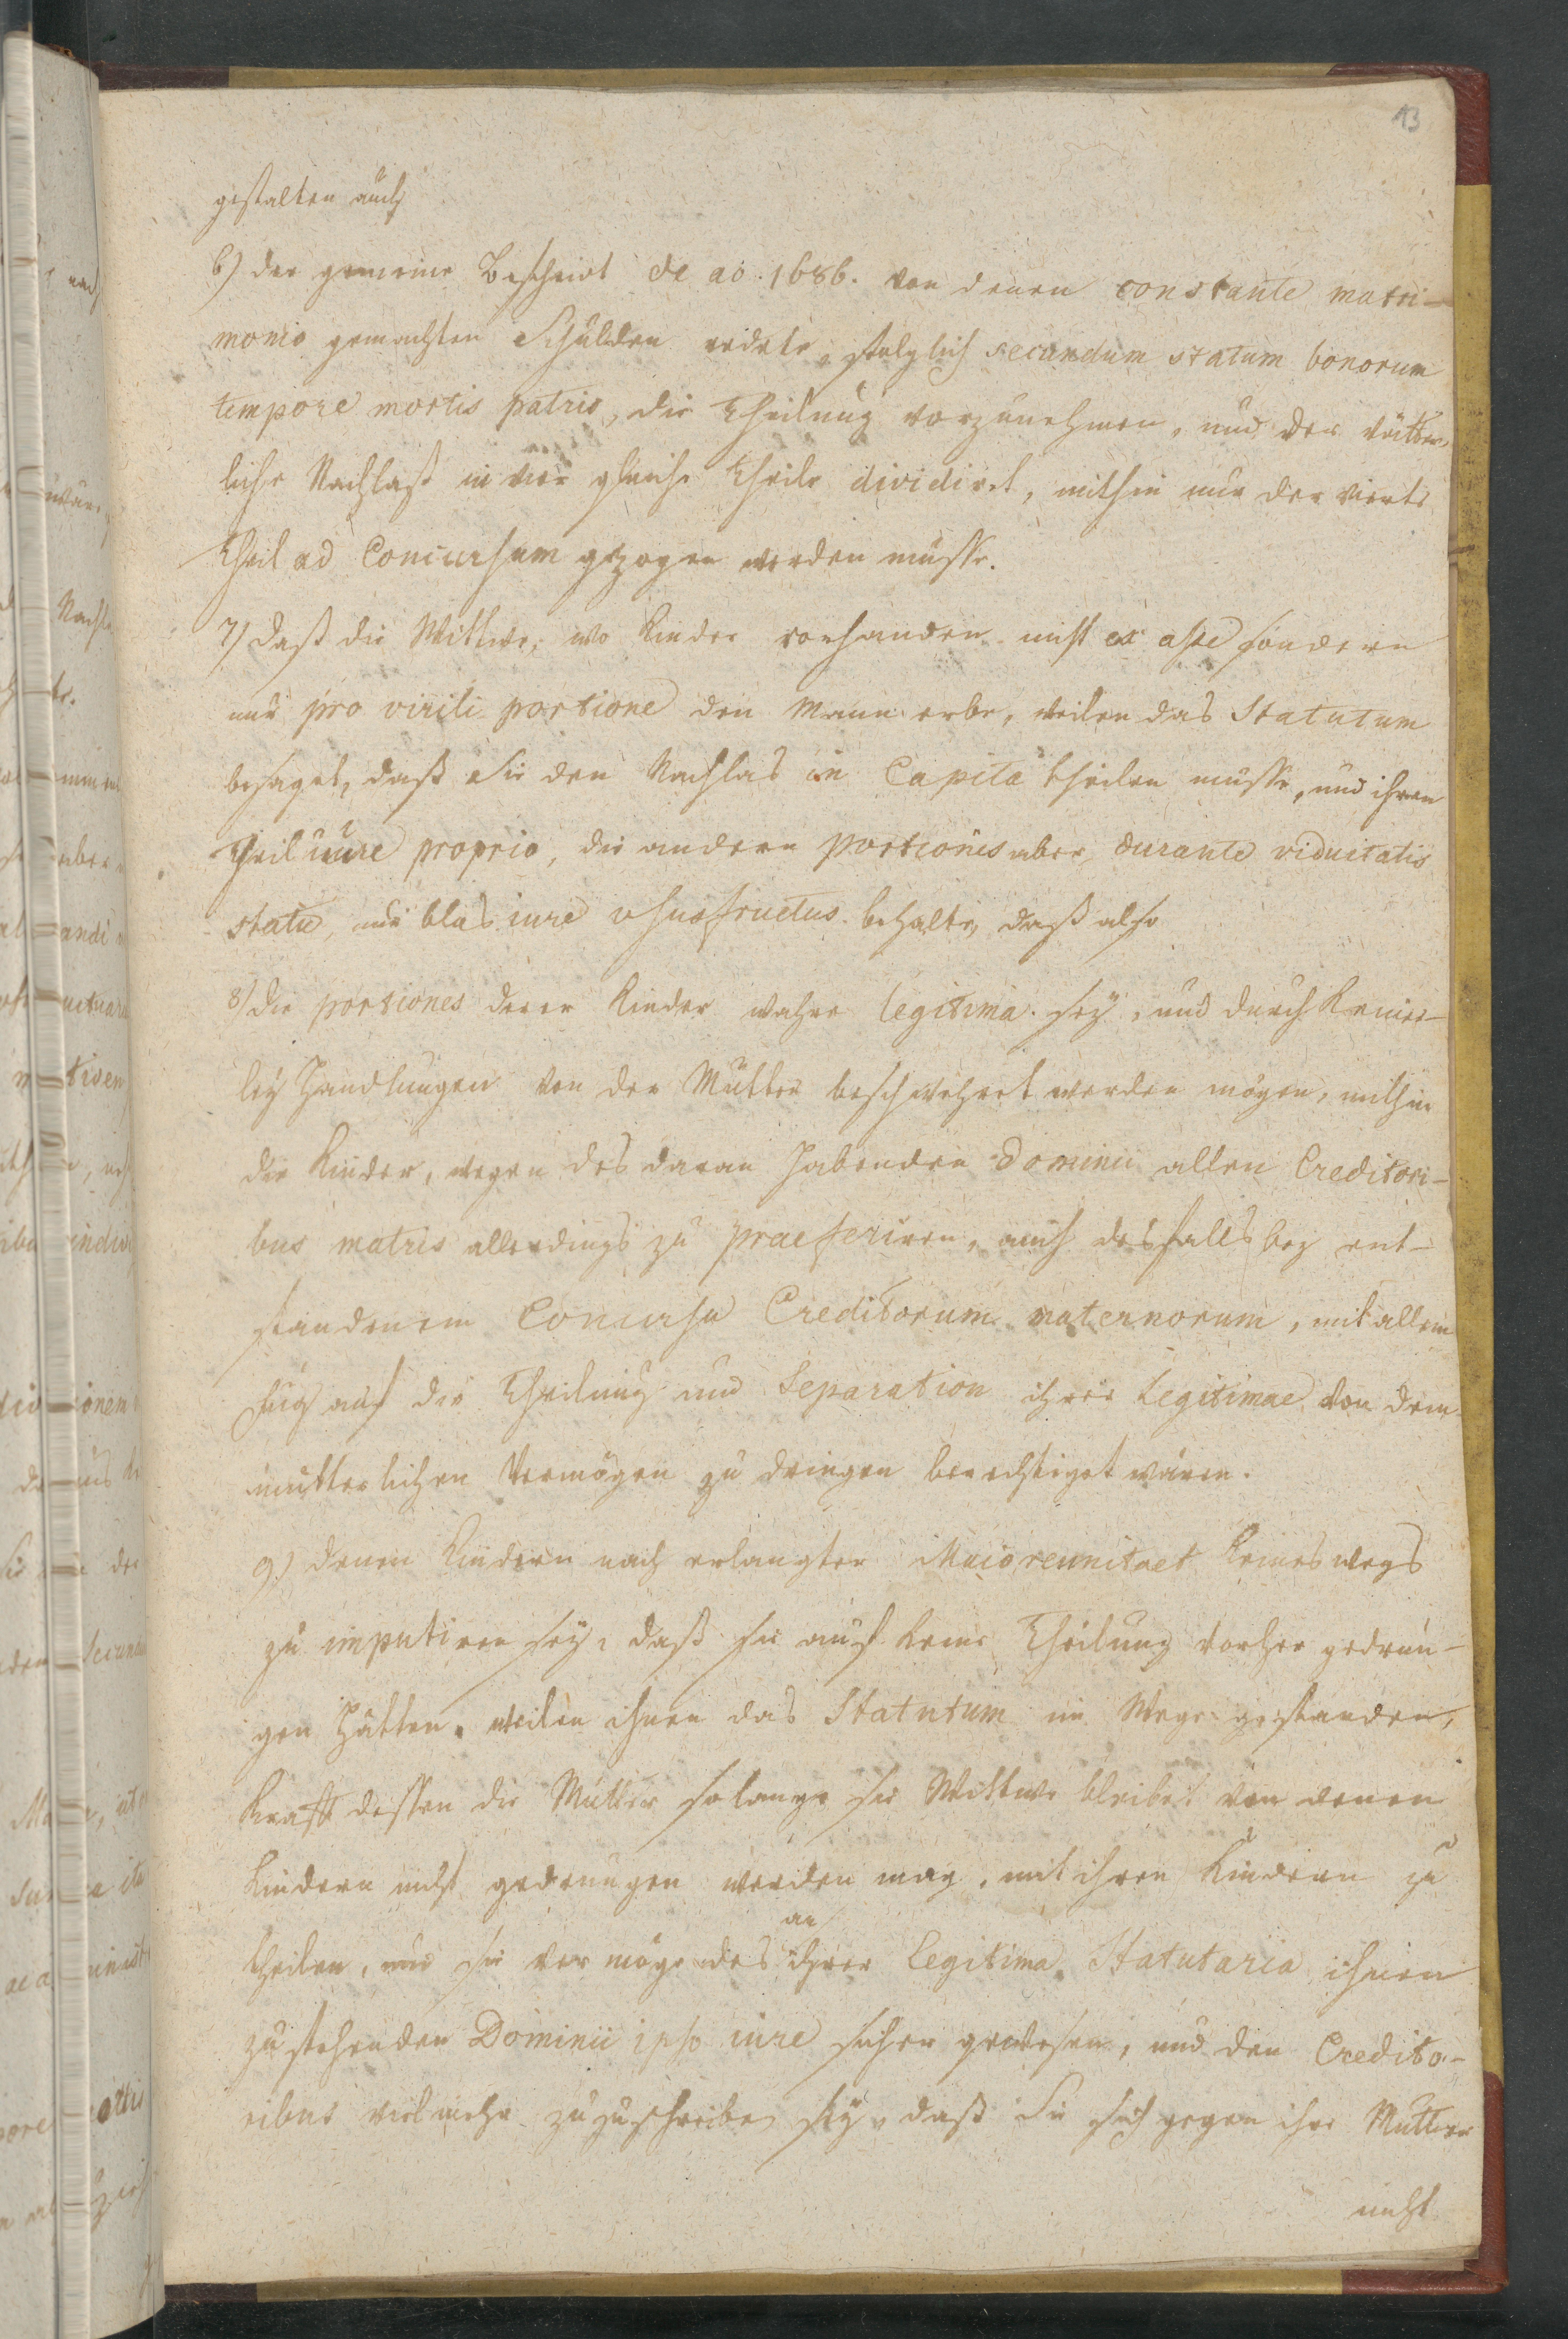 13
gestalten auch
6) der gemeine Bescheid de ao. 1686. von denen constante matri-
monio gemachten Schulden redete, folglich secundum statum bonorum
tempore mortis patris, die Theilung vorzunehmen, und der vätter-
liche Nachlaß in vier gleiche Theile dividiret, mithin nur der vierte
Theil ad Concursum gezogen werden müsse.
7) Daß die Wittwe, wo Kinder vorhanden nicht ex asse sondern
nur pro virili portione den Mann erbe, weilen das Statutum
besaget, daß Sie den Nachlas in Capita theilen müsse, und ihren
Theil iure proprio, die andern portiones aber durante viduitatis
statu, nur blos iure usufructus behalte, daß also
8) die portiones derer Kinder wahre legitima sey, und durch keiner-
ley Handlungen von der Mutter beschwehret werden mögen, mithin
die Kinder, wegen des daran habenden Dominii allen Creditori-
bus matris allerdings zu praeferiren, auch desfalls bey ent-
standenem Concursu Creditorum maternorum, mit allem
Fug auf die Theilung und Separation ihrer Legitimae von dem
mütterlichen Vermögen zu dringen berechtiget wären.
9.) denen Kindern nach erlangter Maiorennitaet keineswegs
zu imputiren sey, daß sie auf keine Theilung vorher gedrun-
gen hätten, weilen ihnen das Statutum im Wege gestanden,
Kraft dessen die Mutter solange sie Wittwe bleibet von denen
Kindern nicht gedrungen werden mag, mit ihren Kindern zu
theilen, und sie vermöge des an ihrer Legitima Statutaria ihnen
zustehenden Dominii ipso iure sicher gewesen, und den Credito-
ribus vielmehr zuzuschreiben sey, daß Sie sich gegen ihre Mutter
nicht